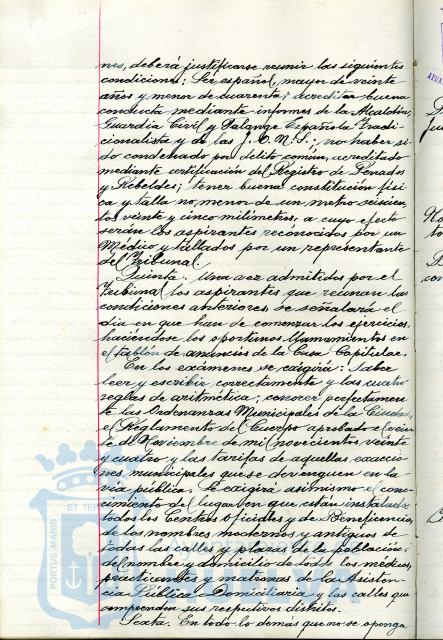 nes, deberá justificarse reunir las siguientes
condiciones: Ser español, mayor de veinte
años y menor de cuarenta; acreditar buena
conducta mediante informes de la Alcaldía,
Guardia Civil y Falange Española Tradi-
cionalista y de las J.O.N.S.; no haber si-
do condenado por delito común, acreditado
mediante certificación del Registro de Penados
y Rebeldes; tener buena constitución físi-
ca y talla no menor de un metro seiscien-
tos veinte y cinco milímetros, a cuyo efecto
serán los aspirantes reconocidos por un
Médico y tallados por un representante
del Tribunal.
Quinta: Una vez admitidos por el
Tribunal los aspirantes que reunan las
condiciones anteriores, se señalará el
día en que han de comenzar los ejercicios,
haciéndose los oportunos llamamientos en
el tablón de anuncios de la Casa Capitular.
En los exámenes se exigirá: Saber
leer y escribir correctamente y las cuatro
reglas de aritmética; conocer perfectamen-
te las Ordenanzas Municipales de la Ciudad,
el Reglamento del Cuerpo aprobado el vein-
te de Noviembre de mil novecientos veinte
y cuatro y las tarifas de aquellas exaccio-
nes municipales que se devenguen en la
vía pública. Se exigirá asimismo el cono-
cimiento del lugar en que están instalados
todos los Centros oficiales y de Beneficencia,
de los nombres modernos y antiguos de
todas las calles y plazas de la población;
del nombre y domicilio de todos los médicos,
practicantes y matronas de la Asisten-
cia Pública Domiciliaria y las calles que
comprenden sus respectivos distritos.
Sexta: En todo lo demás que no se oponga
PORTUS MARIS
ET TER